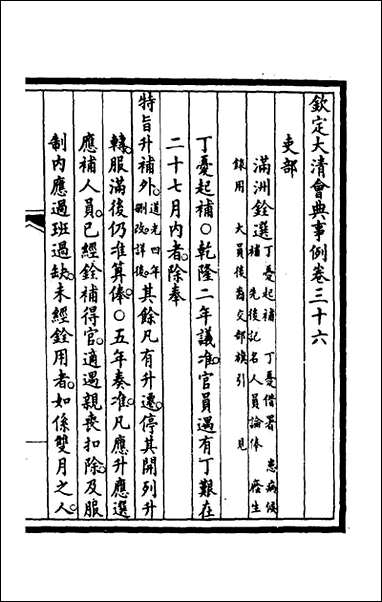 欽定大清會典事例卷三十六
吏部
滿洲銓選丁憂起補 丁憂借署 患病候補 先後記名人員論俸 廕生
錄用 大員後裔交部帶引 見
丁憂起補○乾隆二年議准官員遇有丁艱在
二十七月內者除奉
特旨升補外道光四年刪改詳後其餘凡有升遷停其開列升
轉服滿後仍准算俸○五年奏准凡應升應選
應補人員已經銓補得官適遇親喪扣除及服
制內應過班過缺未經銓用者如係雙月之人